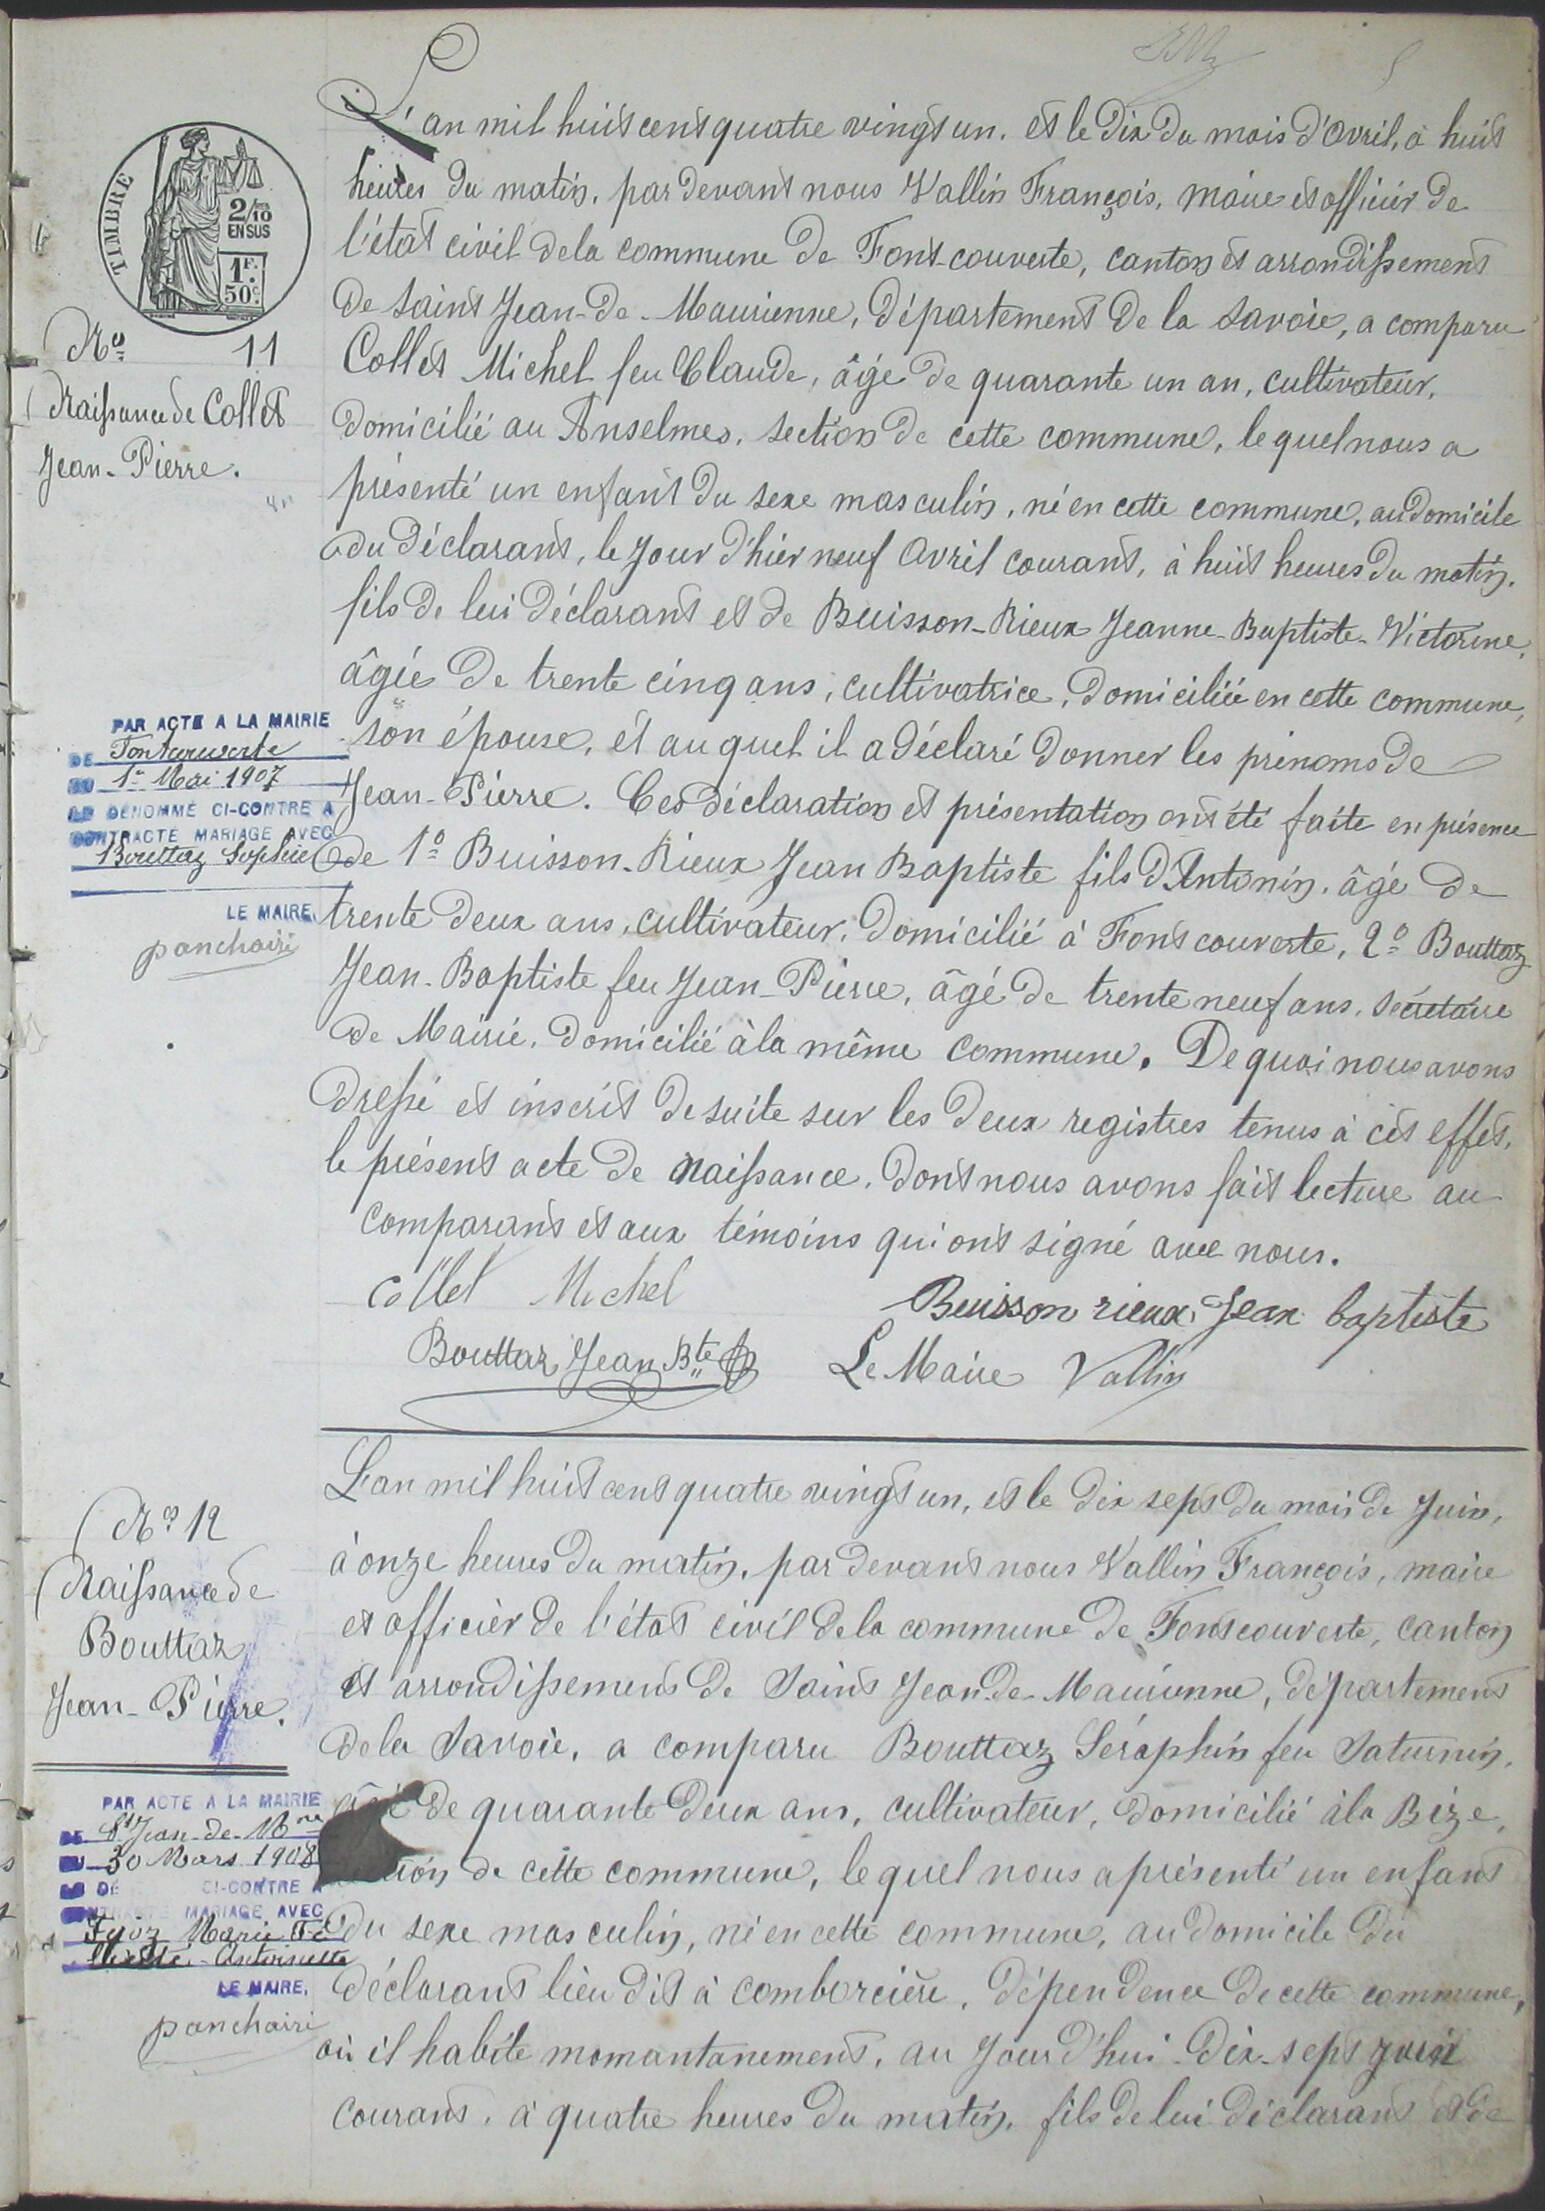 L'an mil huit cent quatre vingt un. et le dix du mois d'avril, à huit
heures du matin, par devant nous Vallin François, maire et officier de
l'état civil de la commune de Fontcouverte, canton et arrondissement
de Saint Jean-de-Maurienne, département de la Savoie, a comparu
Collet Michel feu Claude, âgé de quarante un an, cultivateur,
domicilié au Anselmes, section de cette commune, lequel nous a
présenté un enfant du sexe masculin, né en cette commune, au domicile
du déclarant, le jour d'hier neuf avril courant, à huit heures du matin,
fils de lui déclarant et de Buisson-Rieux Jeanne-Baptiste-Victorine,
âgée de trente cinq ans, cultivatrice, domiciliée en cette commune,
son épouse, et auquel il a déclaré donner les prénoms de
Jean-Pierre. Ces déclaration et présentation ont été faite en présence
de 1º Buisson-Rieux Jean Baptiste fils d'Antonin, âgé de
trente deux ans, cultivateur, domicilié à Fontcouverte, 2º Bouttaz
Jean-Baptiste feu Jean-Pierre, âgé de trente neuf ans, secrétaire
de Mairie, domicilié à la même commune. De quoi nous avons
dressé et inscrit de suite sur les deux registres tenus à cet effet,
le présent acte de naissance, dont nous avons fait lecture au
comparant et aux témoins qui ont signé avec nous.
Collet Michel
Buisson rieux Jean baptiste
Bouttaz Jean Bte
Le Maire Vallin
TIMBRE
2/10
EN SUS
1F.
50c.
Nº 11
Naissance de Collet
Jean-Pierre.
PAR ACTE A LA MAIRIE
DE Fontcouverte
DU 1er Mai 1907
LE DÉNOMMÉ CI-CONTRE A
CONTRACTÉ MARIAGE AVEC
Bouttaz Sophie
LE MAIRE,
L'an mil huit cent quatre vingt un, et le dix sept du mois de Juin,
à onze heures du matin, par devant nous Vallin François, maire
et officier de l'état civil de la commune de Fontcouverte, canton
et arrondissement de Saint Jean-de-Maurienne, département
de la Savoie, a comparu Bouttaz Séraphin feu Saturnin,
âgé de quarante deux ans, cultivateur, domicilié à la Bize,
section de cette commune, lequel nous a présenté un enfant
du sexe masculin, né en cette commune, au domicile du
déclarant lieu dit à comborcière, dépendence de cette commune,
où il habite momantanement, au jour d'hui dix-sept juin
courant, à quatre heures du matin, fils de lui déclarant et de
Nº 12
Naissance de
Bouttaz
Jean-Pierre.
PAR ACTE A LA MAIRIE
DE St Jean-de-Mne
DU 30 Mars 1908
LE DÉ CI-CONTRE A
CONTRACTÉ MARIAGE AVEC
Marie
Antoinette
LE MAIRE,